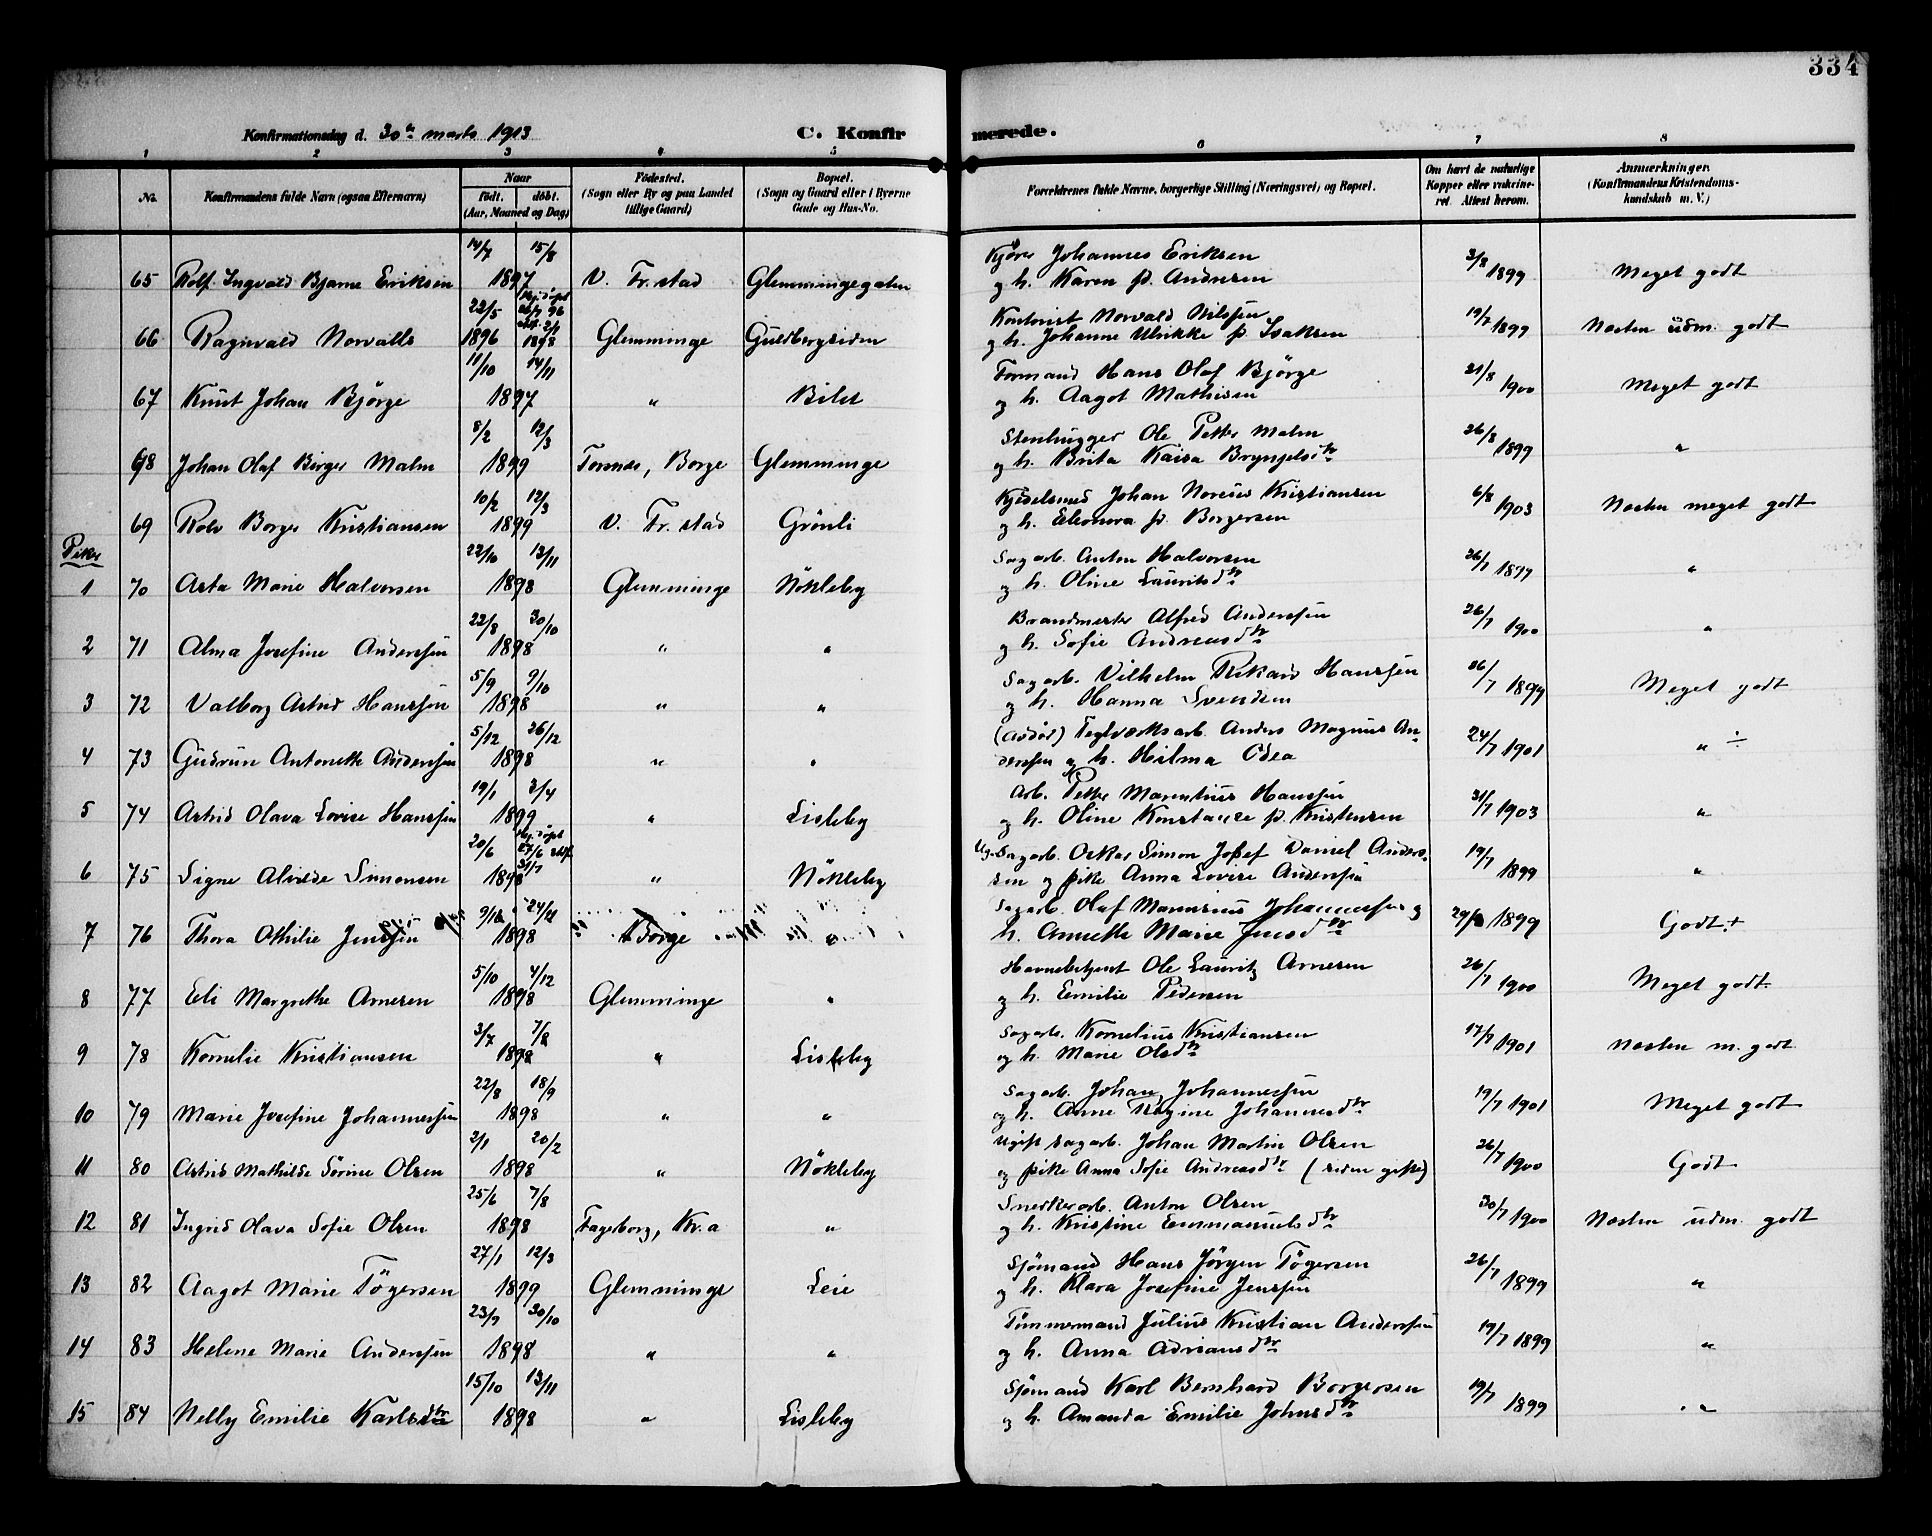 334
Konfirmationsdag d. 30te marts 1913
C. Konfirmerede.
1 2 3 4 5 6 7 8
No.
Konfirmandens fulde Navn (ogsaa Efternavn)
Naar
født. døbt.
(Aar, Maaned og Dag)
Fødested.
(Sogn eller By og paa Landet
tillige Gaard)
Bopæl.
(Sogn og Gaard eller i Byerne
Gade og Hus-No.
Forældrenes fulde Navne, borgerlige Stilling (Næringsvei) og Bopæl.
Om havt de naturlige
Kopper eller vakcine-
ret. Attest herom.
Anmærkninger.
(Konfirmandens Kristendoms-
kundskab m. V.)
14/7 15/8 Kjører Johannes Eriksen
65 Rolf Ingvald Bjarne Eriksen 1897 V. Fr.stad Glemmingegaten og h. Karen f. Andresen 3/8 1899 Meget godt
22/5 Hj. døpt 26/7 96 Kontorist Norvald Nilssen
66 Ragnvald Norvalls 1896 1898 Glemminge Guldbergsiden og h. Johanne Ulrikke f. Isaksen 19/7 1899 Næsten udm. godt
11/10 14/11 Formand Hans Olaf Bjørge
67 Knut Johan Bjørge 1897 " Bilet og h. Aagot Mathisen 21/8 1900 Meget godt
8/2 12/3 Stenhugger Ole Petter Malm
68 Johan Olaf Birger Malm 1899 Tornes, Borge Glemminge og h. Brita Kaisa Bryngelsdtr 26/8 1899 "
10/2 12/3 Kjedelsmed Johan Norelius Kristiansen
69 Rolv Borger Kristiansen 1899 V. Fr.stad Grønli og h. Eleonora f. Borgersen 6/8 1903 Næsten meget godt
Piker
22/10 13/11 Sagarb. Anton Halvorsen
1 70 Asta Marie Halvorsen 1898 Glemminge Nökleby og h. Oline Lauritsdtr 26/7 1899 "
22/8 30/10 Brandmester Alfred Anderssen
2 71 Alma Josefine Anderssen 1898 " " og h. Sofie Andreasdtr 26/7 1900 "
5/9 9/10 Sagarb. Vilhelm Rikard Hanssen
3 72 Valborg Astrid Hanssen 1898 " " og h. Hanna Svendsen 26/7 1899 Meget godt
5/12 26/12 (adød) Teglværksarb. Anders Magnus An-
4 73 Gudrun Antonette Anderssen 1898 " " derssen og h. Hilma Odea 24/7 1901 " ÷
19/1 3/4 Arb. Petter Marentius Hanssen
5 74 Astrid Olava Lovise Hanssen 1899 " Lisleby og h. Oline Konstanse f. Kristensen 31/7 1903 "
20/6 Hj. døpt 27/6 stadf. 31/7 Ug. Sagarb. Oskar Simon Josef Daniel Anders-
6 75 Signe Alvilde Simonsen 1898 " Nökleby sen og pike Anna Lovise Anderssen 19/7 1899 "
9/12 Sagarb. Olaf Johannessen og
7 76 Thora Othilie Jenssen 1898 Borge " h. Annette Marie Jensdtr 1899 Godt +
5/10 4/12 Havnebetjent Ole Lauritz Arnesen
8 77 Eli Margrethe Arnesen 1898 Glemminge " og h. Emilie Pedersen 26/7 1900 Meget godt
3/7 7/8 Sagarb. Kornelius Kristiansen
9 78 Kornelie Kristiansen 1898 " Lisleby og h. Marie Olsdtr 17/7 1901 Næsten m. godt
22/8 18/9 Sagarb. Johan Johannessen
10 79 Marie Josefine Johannessen 1898 " " og h. Anne Regine Johannesdtr 19/7 1901 Meget godt
2/1 20/2 Ugift sagarb. Johan Martin Olsen
11 80 Astrid Mathilde Sørine Olsen 1898 " Nökleby og pike Anna Sofie Andreasdtr (siden gifte) 26/7 1900 Godt
25/6 7/8 Snedkerarb. Anton Olsen
12 81 Ingrid Olava Sofie Olsen 1898 Fageborg, Kr.a " og h. Kristine Emmanuelsdtr 30/7 1900 Næsten udm. godt
27/1 12/3 Sjømand Hans Jørgen Tögersen
13 82 Aagot Marie Tögersen 1899 Glemminge Leie og h. Klara Josefine Jenssen 26/7 1899 "
23/9 30/10 Tømmermand Julius Kristian Anderssen
14 83 Helene Marie Anderssen 1898 " " og h. Anna Adriansdtr 19/7 1899 "
15/10 13/11 Sjømand Karl Bernhard Borgersen
15 84 Nelly Emilie Karlsdtr 1898 " Lisleby og h. Amanda Emilie Johnsdtr 19/7 1899 "